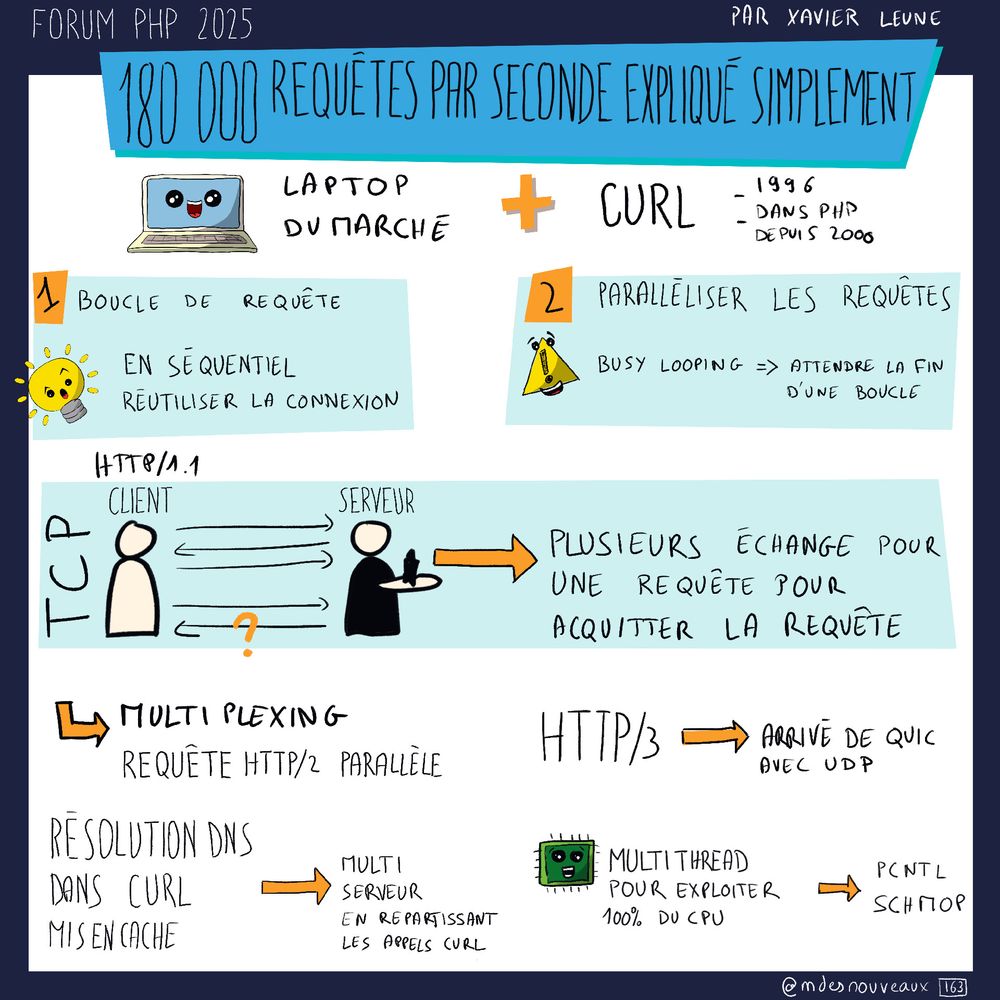 FORUM PHP 2025
PAR XAVIER LEUNE
180 000 REQUÊTES PAR SECONDE EXPLIQUÉ SIMPLEMENT
LAPTOP
DU MARCHÉ
+
CURL
- 1996
- DANS PHP
DEPUIS 2000
1 BOUCLE DE REQUÊTE
EN SÉQUENTIEL
RÉUTILISER LA CONNEXION
2 PARALLÉLISER LES REQUÊTES
BUSY LOOPING => ATTENDRE LA FIN
D'UNE BOUCLE
HTTP/1.1
TCP
CLIENT
SERVEUR
?
PLUSIEURS ÉCHANGE POUR
UNE REQUÊTE POUR
ACQUITTER LA REQUÊTE
MULTIPLEXING
REQUÊTE HTTP/2 PARALLÈLE
HTTP/3
ARRIVÉ DE QUIC
AVEC UDP
RÉSOLUTION DNS
DANS CURL
MIS EN CACHE
MULTI
SERVEUR
EN REPARTISSANT
LES APPELS CURL
MULTITHREAD
POUR EXPLOITER
100% DU CPU
PCNTL
SCHMOP
@mdesnouveaux 163